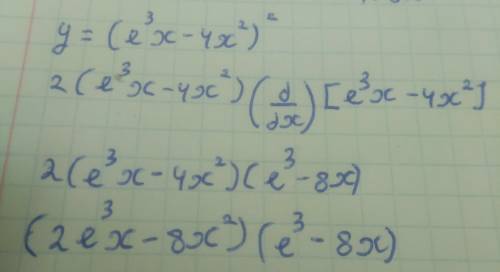 y = (e³x - 4x²)²
2(e³x - 4x²)(d/dx)[e³x - 4x²]
2(e³x - 4x²)(e³ - 8x)
(2e³x - 8x²)(e³ - 8x)